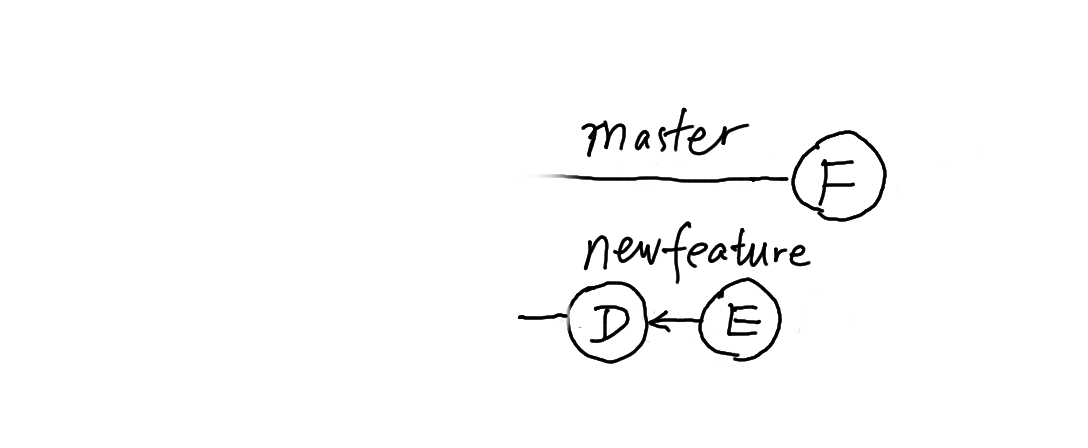 master
F
newfeature
D E